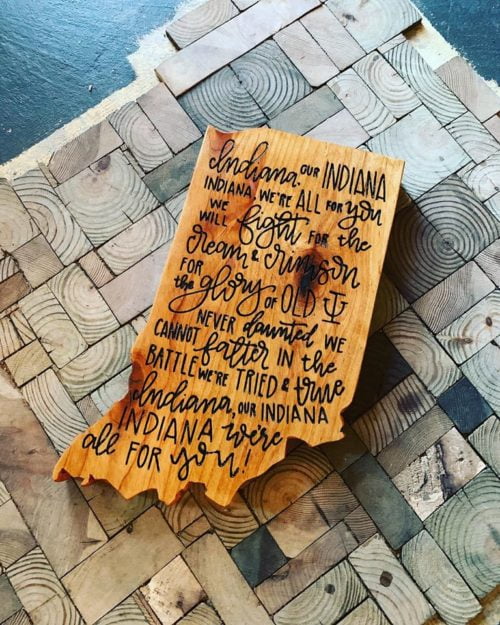 Indiana, OUR INDIANA
INDIANA, WE'RE ALL FOR you
WE WILL fight FOR the
cream & crimson
FOR the glory OF OLD IU
NEVER daunted WE
CANNOT falter IN the
BATTLE WE'RE TRIED & true
Indiana, OUR INDIANA
INDIANA we're
all FOR you!